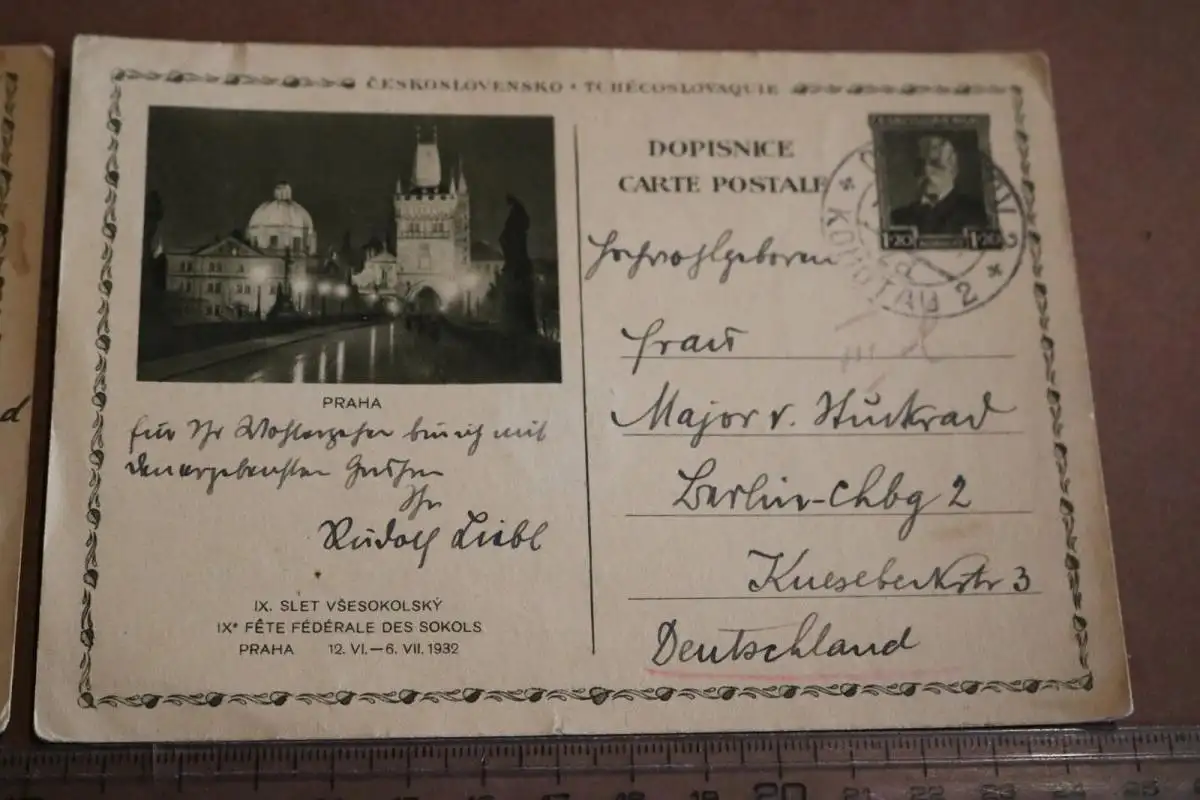 ČESKOSLOVENSKO • TCHÉCOSLOVAQUIE
DOPISNICE
CARTE POSTALE
1·20 1·20
CHOMUTOV 2
KOMOTAU 2
PRAHA
Hochwohlgeboren
Frau
Major v. Stuckrad
Berlin-Chbg 2
Knesebeckstr 3
Deutschland
für Ihr Wohlergehen bin ich mit
den ergebensten Grüßen
Ihr
Rudolf Liebl
IX. SLET VŠESOKOLSKÝ
IXᵉ FÊTE FÉDÉRALE DES SOKOLS
PRAHA 12. VI.—6. VII. 1932
d
20